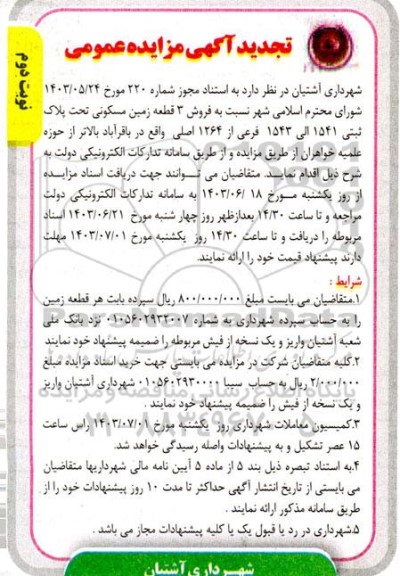 تجدید آگهی مزایده عمومی
نوبت دوم
شهرداری آشتیان در نظر دارد به استناد مجوز شماره ۲۲۰ مورخ ۱۴۰۳/۰۵/۲۴
شورای محترم اسلامی شهر نسبت به فروش ۳ قطعه زمین مسکونی تحت پلاک
ثبتی ۱۵۴۱ الی ۱۵۴۳ فرعی از ۱۲۶۴ اصلی واقع در باقرآباد بالاتر از حوزه
علمیه خواهران از طریق مزایده و از طریق سامانه تدارکات الکترونیکی دولت به
شرح ذیل اقدام نمایند. متقاضیان می توانند جهت دریافت اسناد مزایده
از روز یکشنبه مورخ ۱۸ /۱۴۰۳/۰۶ به سامانه تدارکات الکترونیکی دولت
مراجعه و تا ساعت ۱۴/۳۰ بعدازظهر روز چهار شنبه مورخ ۱۴۰۳/۰۶/۲۱ اسناد
مربوطه را دریافت و تا ساعت ۱۴/۳۰ روز یکشنبه مورخ ۱۴۰۳/۰۷/۰۱ مهلت
دارند پیشنهاد قیمت خود را ارائه نمایند.
شرایط :
۱.متقاضیان می بایست مبلغ ۸۰۰/۰۰۰/۰۰۰ ریال سپرده بابت هر قطعه زمین
را به حساب سپرده شهرداری به شماره ۰۱۰۵۶۰۲۹۳۲۰۰۷ نزد بانک ملی
شعبه آشتیان واریز و یک نسخه از فیش مربوطه را ضمیمه پیشنهاد خود نمایند
۲.کلیه متقاضیان شرکت در مزایده می بایستی جهت خرید اسناد مزایده مبلغ
۲/۰۰۰/۰۰۰ ریال به حساب سیبا شهرداری آشتیان واریز
و یک نسخه از فیش را ضمیمه پیشنهاد خود نمایند
۳.کمیسیون معاملات شهرداری روز یکشنبه مورخ ۱۴۰۳/۰۷/۰۱ راس ساعت
۱۵ عصر تشکیل و به پیشنهادات واصله رسیدگی خواهد شد.
۴.به استناد تبصره ذیل بند ۵ از ماده ۵ آیین نامه مالی شهرداریها متقاضیان
می بایستی از تاریخ انتشار آگهی حداکثر تا مدت ۱۰ روز پیشنهادات خود را از
طریق سامانه مذکور ارائه نمایند .
۵.شهرداری در رد یا قبول یک یا کلیه پیشنهادات مجاز می باشد .
شهرداری آشتیان